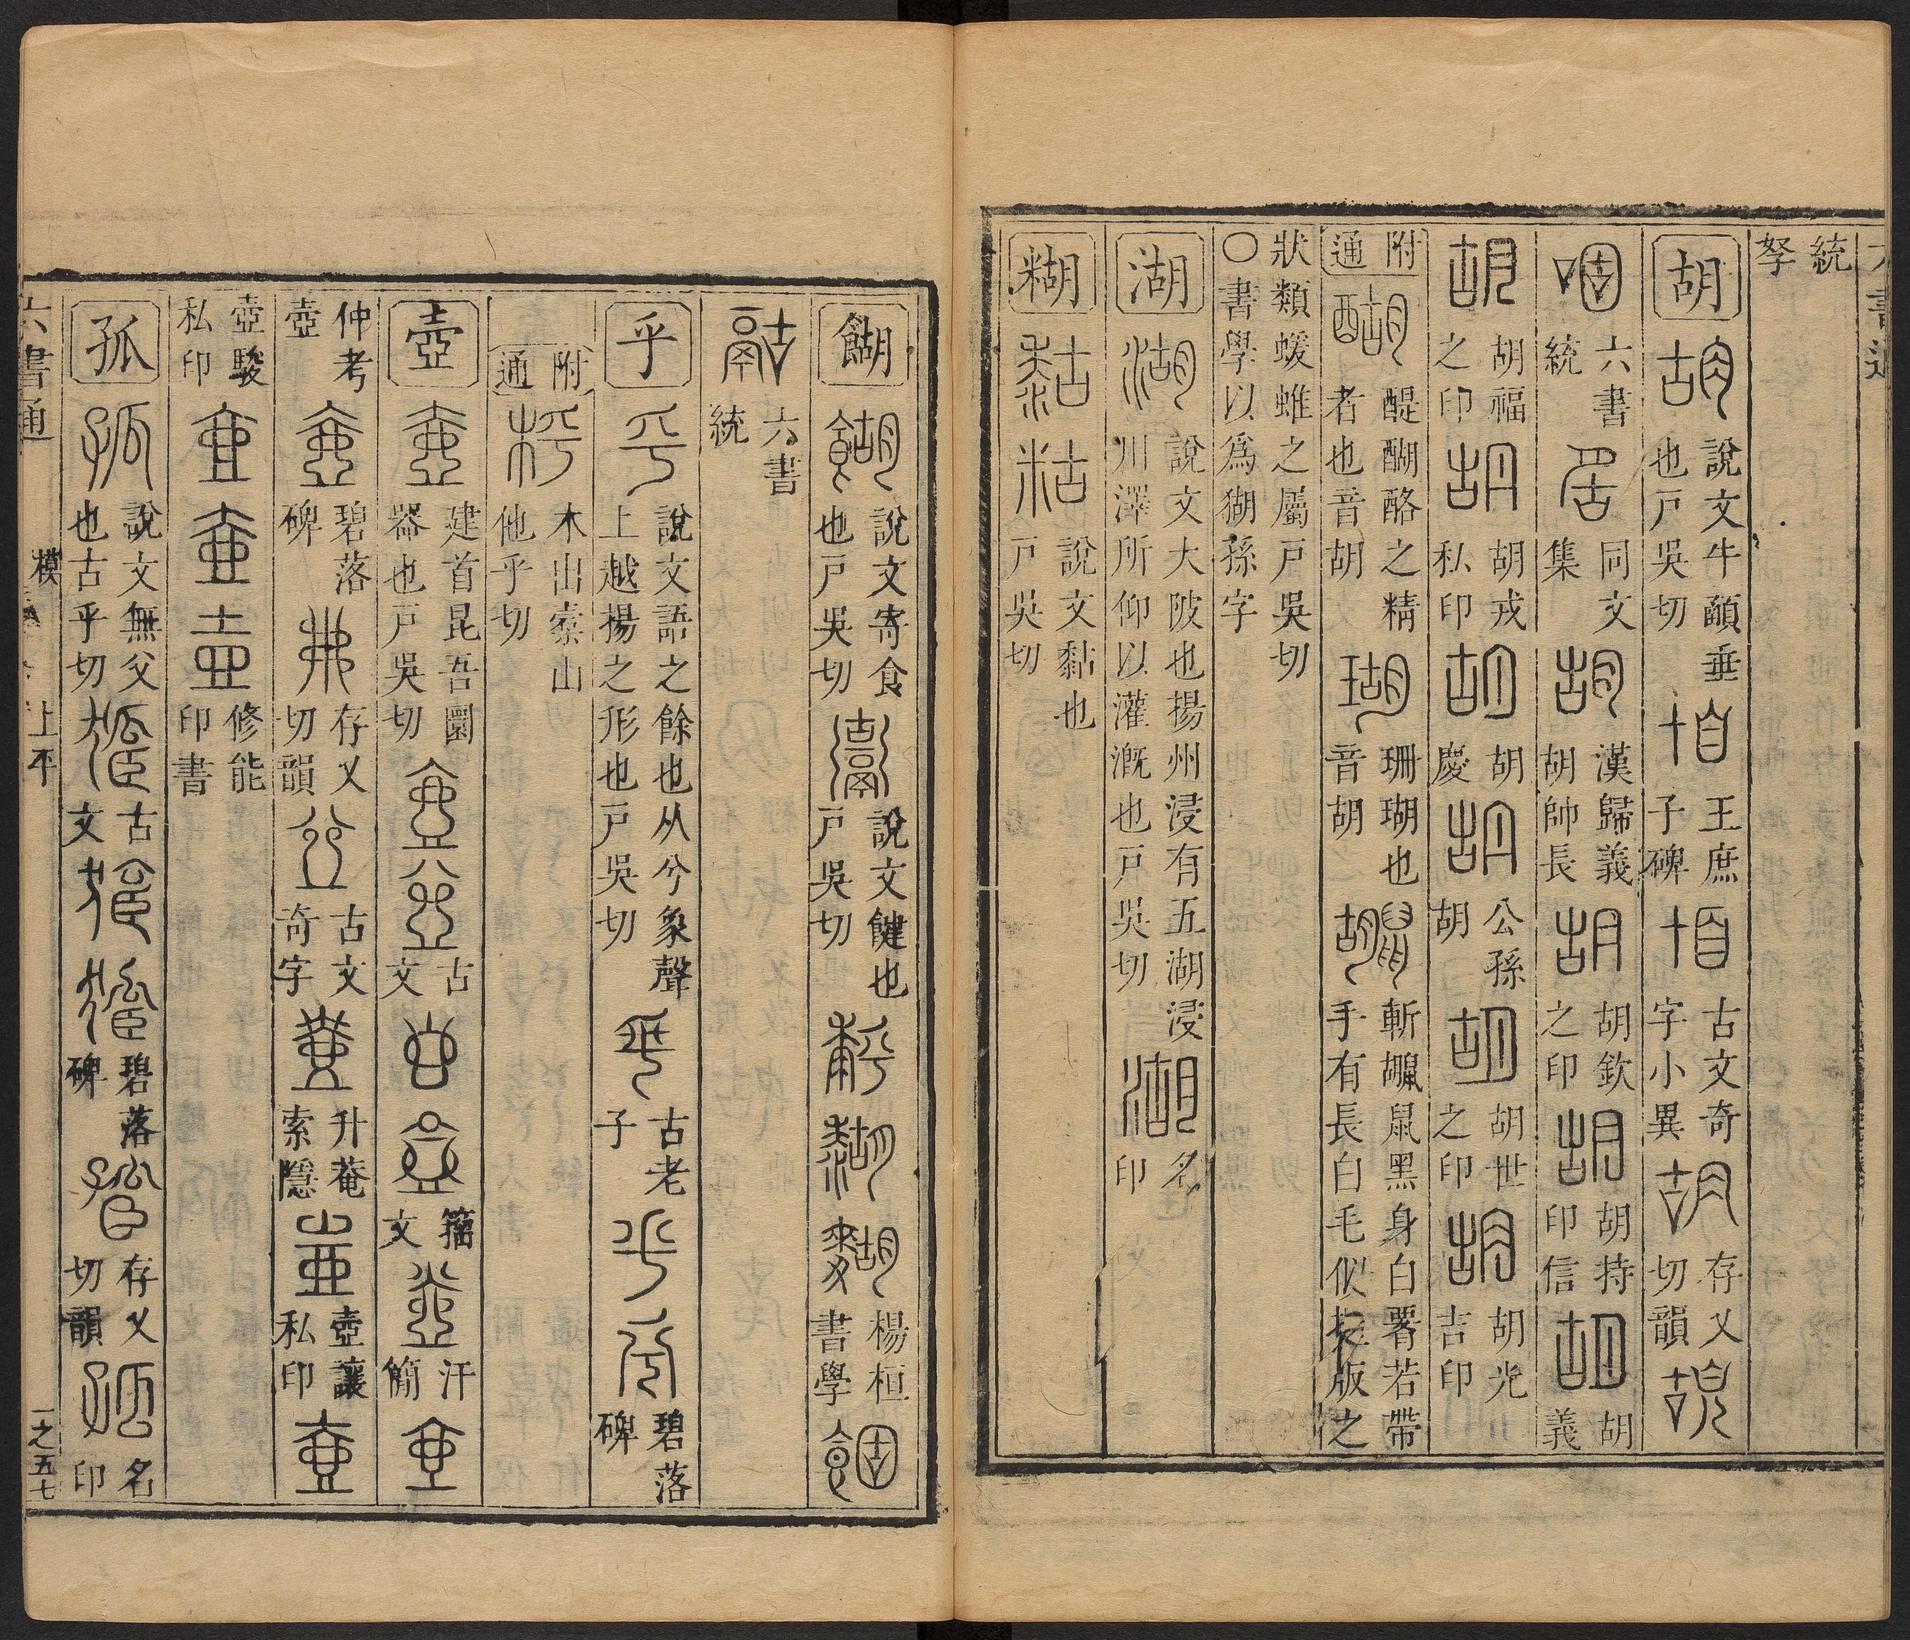 六書通
統
孥
胡 說文牛顄垂也戸吳切 王庶子碑 古文奇字小異 存乂切韻
六書統 同文集 漢歸義胡帥長 胡欽之印 胡持印信 胡義
胡福之印 胡戎私印 胡慶 公孫胡 胡世之印 胡光吉印
附通 醍醐酪之精者也音胡 珊瑚也音胡 斬鼠黑身白署若帶手有長白毛似版之
狀類蝯蜼之屬戸吳切
〇書學以為猢孫字
湖 說文大陂也揚州浸有五湖浸川澤所仰以灌漑也戸吳切 名印
糊 說文黏也戸吳切
餬 說文寄食也戸吳切 說文䭈也戸吳切 楊桓書學
六書統
乎 說文語之餘也从兮象聲上越揚之形也戸吳切 古老子 碧落碑
附通 木出橐山他乎切
壺 建首昆吾圜器也戸吳切 古文 籀文 汗簡
仲考壺 碧落碑 存乂切韻 古文奇字 升菴索隱 壺讓私印
壺駿私印 修能印書
孤 說文無父也古乎切 古文 碧落碑 存乂切韻 名印
六書通 模 上平 一之五七